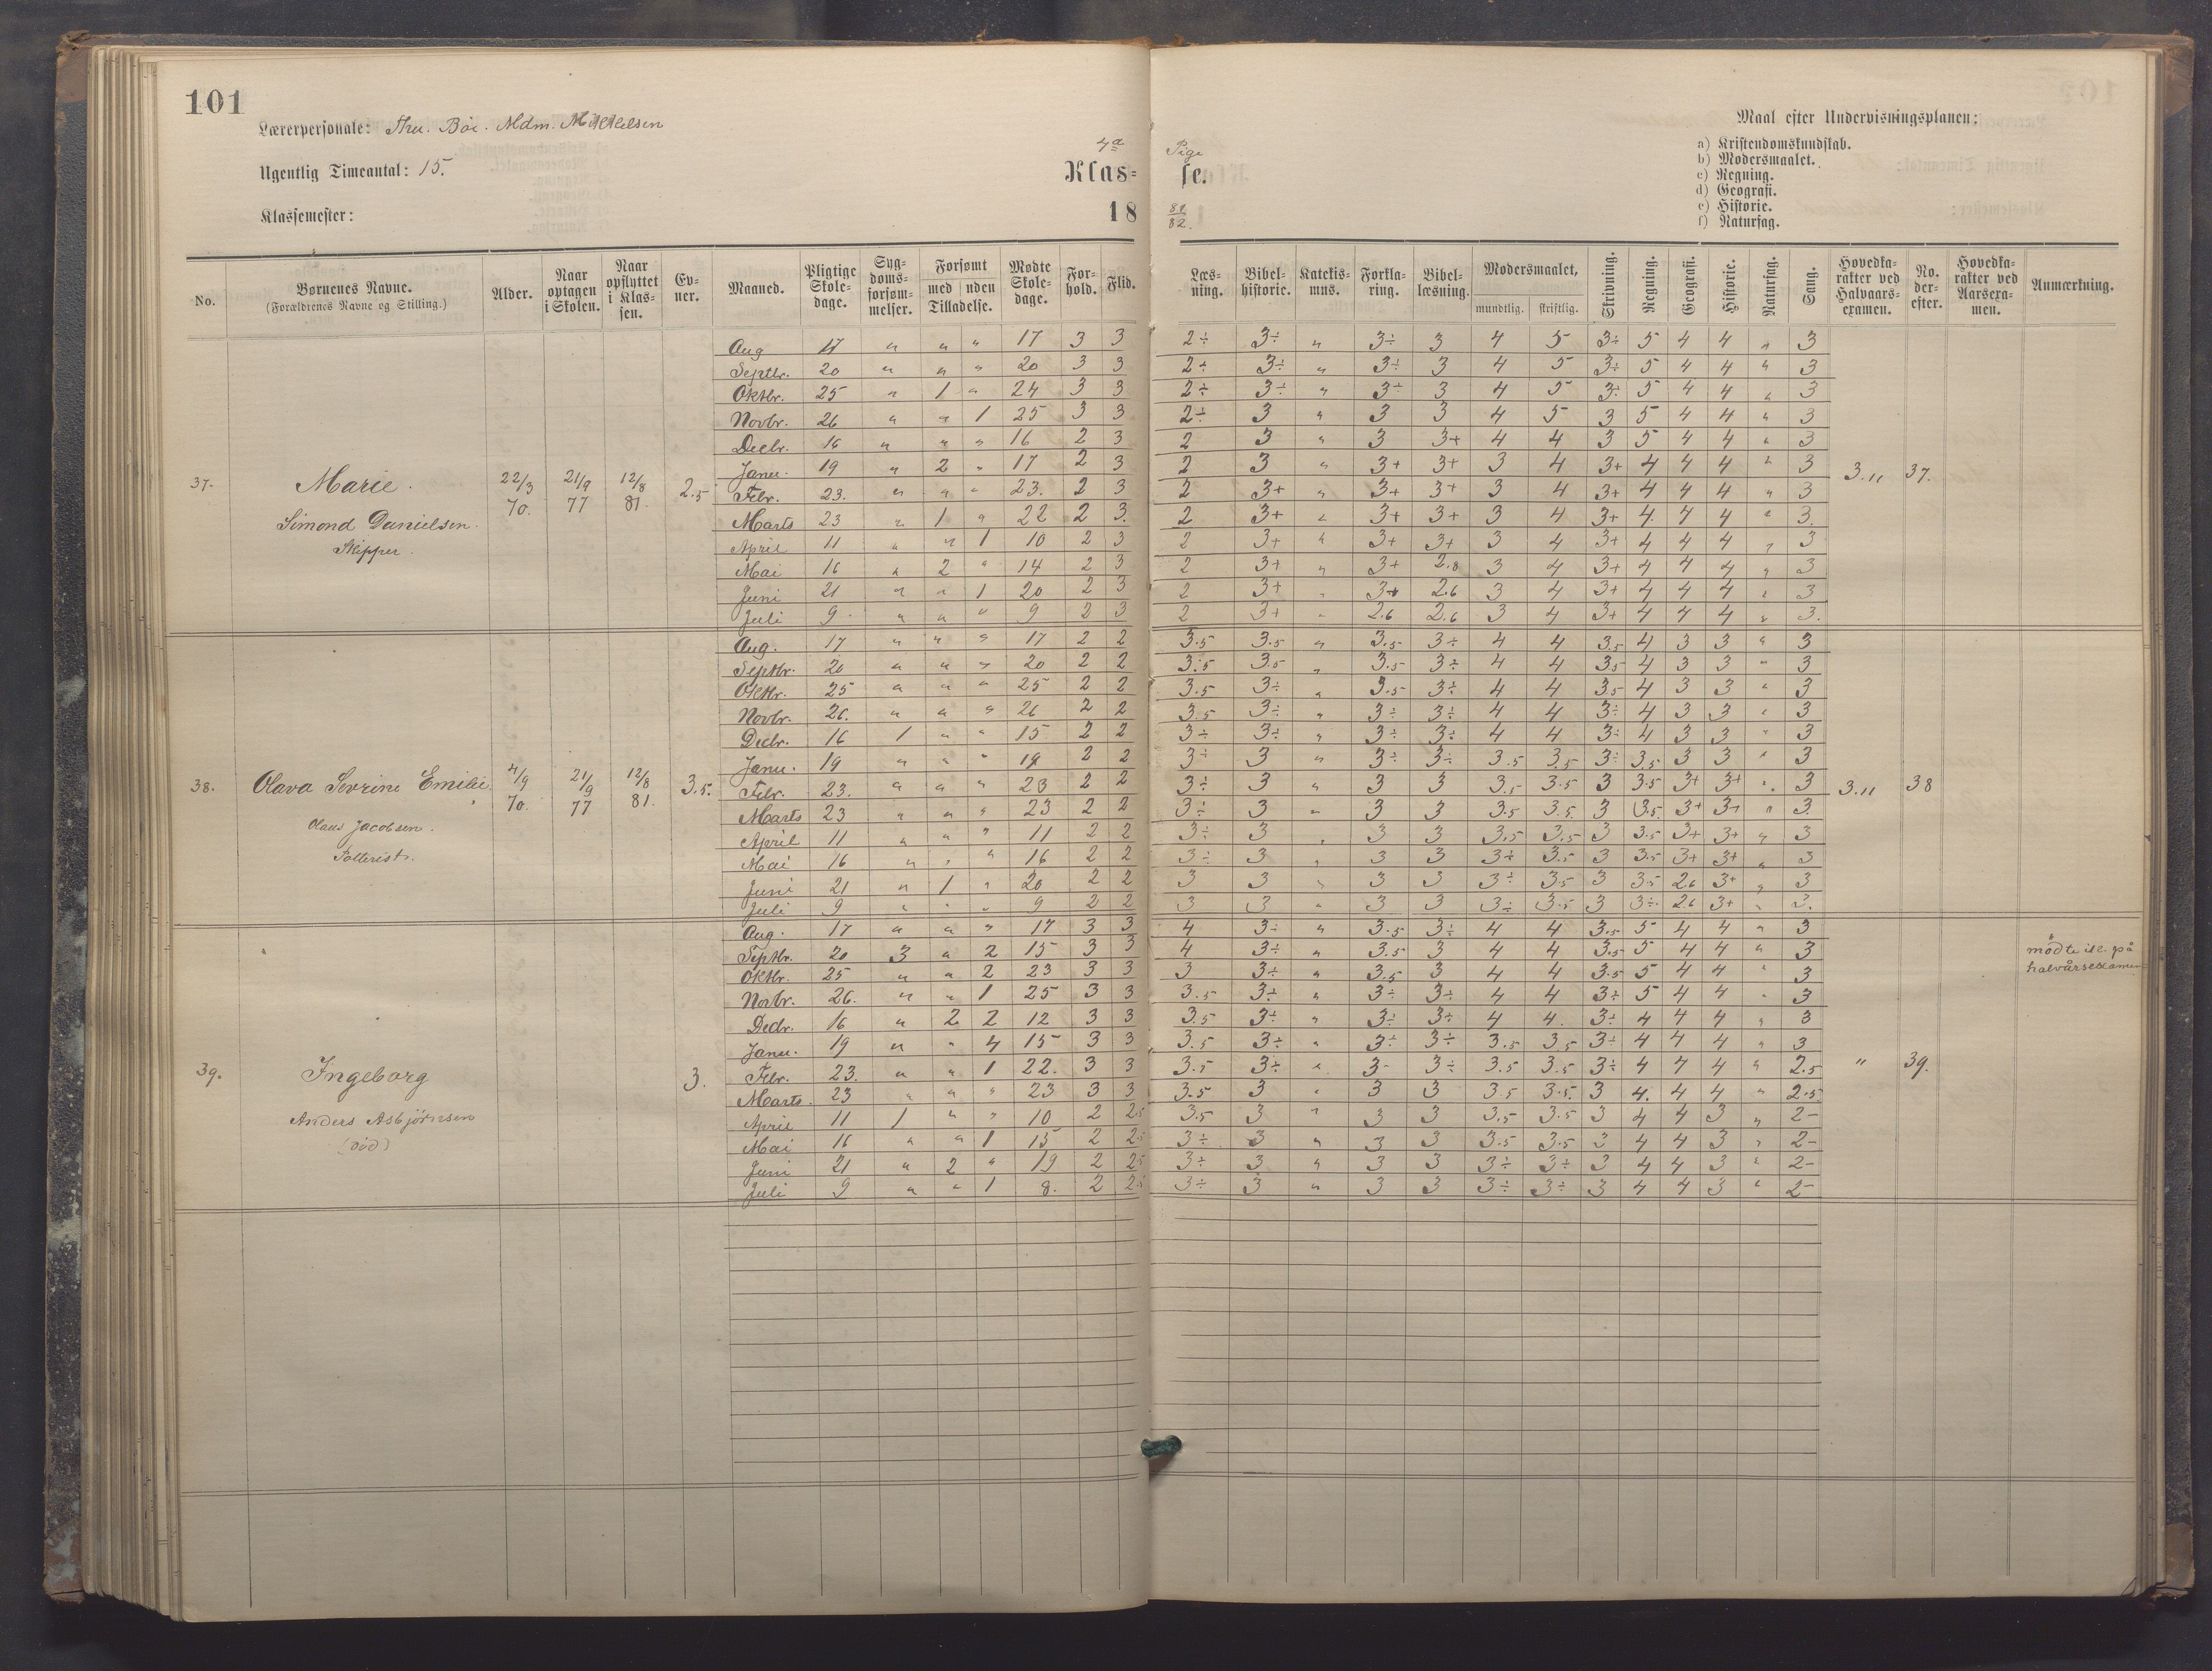 101
Lærerpersonale: Thu. Böe. Mdm. Mikkelsen
Ugentlig Timeantal: 15.
Klassemester:
4a Pige
Klas= se.
18 81/82.
Maal efter Undervisningsplanen:
a) Kristendomskundskab.
b) Modersmaalet.
c) Regning.
d) Geografi.
e) Historie.
f) Naturfag.
No. | Børnenes Navne. (Forældrenes Navne og Stilling.) | Alder. | Naar optagen i Skolen. | Naar opflyttet i Klas-sen. | Ev-ner. | Maaned. | Pligtige Skole-dage. | Syg-doms-forsøm-melser. | Forsømt med uden Tilladelse. | Mødte Skole-dage. | For-hold. | Flid. | Læs-ning. | Bibel-historie. | Katekis-mus. | Forkla-ring. | Bibel-læsning. | Modersmaalet, mundtlig. skriftlig. | Skrivning. | Regning. | Geografi. | Historie. | Naturfag. | Sang. | Hovedka-rakter ved Halvaars-examen. | No. der-efter. | Hovedka-rakter ved Aarsexa-men. | Anmærkning.
37. Marie. 22/3 70. 21/9 77 12/8 81. 2.5 3.11 37.
Simond Danielsen.
Skipper.
Aug 17 " " " 17 3 3 2÷ 3÷ " 3÷ 3 4 5 3÷ 5 4 4 " 3
Septbr. 20 " " " 20 3 3 2÷ 3÷ " 3÷ 3 4 5 3÷ 5 4 4 " 3
Oktbr. 25 " 1 " 24 3 3 2÷ 3÷ " 3÷ 3 4 5 3÷ 5 4 4 " 3
Novbr. 26 " " 1 25 3 3 2÷ 3 " 3 3 4 5 3 5 4 4 " 3
Decbr. 16 " " " 16 2 3 2 3 " 3 3+ 4 4 3 5 4 4 " 3
Janu. 19 " 2 " 17 2 3 2 3 " 3+ 3+ 3 4 3+ 4 4 4 " 3
Febr. 23. " " " 23. 2 3 2 3+ " 3+ 3+ 3 4 3+ 4 4 4 " 3
Marts 23 " 1 " 22 2 3. 2 3+ " 3+ 3+ 3 4 3+ 4. 4 4 " 3.
April 11 " " 1 10 2 3 2 3+ " 3+ 3+ 3 4 3+ 4 4 4 " 3
Mai 16 " 2 " 14 2 3 2 3+ " 3+ 2.8 3 4 3+ 4 4 4 " 3
Juni 21 " " 1 20 2 3 2 3+ " 3+ 2.6 3 4 3+ 4 4 4 " 3
Juli 9 " " " 9 2 3 2 3+ " 2.6 2.6 3 4 3+ 4 4 4 " 3.
38. Olava Sevrine Emilie 4/9 70. 21/9 77 12/8 81. 3.5. 3.11 38
Olaus Jacobsen.
Aug. 17 " " " 17 2 2 3.5 3.5 " 3.5 3÷ 4 4 3.5 4 3 3 " 3
Septbr. 20 " " " 20 2 2 3.5 3.5 " 3.5 3÷ 4 4 3.5 4 3 3 " 3
Oktbr. 25 " " " 25 2 2 3.5 3÷ " 3.5 3÷ 4 4 3.5 4 3 3 " 3
Novbr. 26. " " " 26 2 2 3.5 3÷ " 3÷ 3÷ 4 4 3÷ 4 3 3 " 3
Decbr. 16 1 " " 15 2 2 3÷ 3÷ " 3÷ 3÷ 4 4 3÷ 4 3 3 " 3
Janu. 19 " " " 19 2 2 3÷ 3 " 3÷ 3÷ 3.5 3.5 3÷ 3.5 3 3 " 3
Febr. 23. " " " 23 2 2 3÷ 3 " 3 3 3.5 3.5 3 3.5 3+ 3+ " 3
Marts 23 " " " 23 2 2 3÷ 3 " 3 3 3.5 3.5 3 3.5 3+ 3+ " 3
April 11 " " " 11 2 2 3÷ 3 " 3 3 3.5 3.5 3 3.5 3+ 3+ " 3
Mai 16 " " " 16 2 2 3÷ 3 " 3 3 3÷ 3.5 3 3.5 3+ 3+ " 3
Juni 21 " 1 " 20 2 2 3 3 " 3 3 3÷ 3.5 3 3.5 2.6 3+ " 3
Juli 9 " " " 9 2 2 3 3 " 3 3 3÷ 3.5 3 3÷ 2.6 3+ " 3.
39. Ingeborg 3. " 39. mødte ikke på halvårsexamen
Anders Asbjørnsen
(død)
Aug. 17 " " " 17 3 3 4 3÷ " 3.5 3÷ 4 4 3.5 5 4 4 " 3
Septbr. 20 3 " 2 15 3 3 4 3÷ " 3.5 3 4 4 3.5 5 4 4 " 3
Oktbr. 25 " " 2 23 3 3 3 3÷ " 3.5 3 4 4 3.5 5 4 4 " 3
Novbr. 26. " " 1 25 3 3 3.5 3÷ " 3÷ 3÷ 4 4 3÷ 5 4 4 " 3
Decbr. 16 " 2 2 12 3 3 3.5 3÷ " 3÷ 3÷ 4 4. 3÷ 4 4 4 " 3
Janu. 19 " " 4 15 3 3 3.5 3÷ " 3÷ 3÷ 3.5 3.5 3÷ 4 4 4 " 3
Febr. 23. " " 1 22. 3 3 3.5 3÷ " 3- 3÷ 3.5 3.5 3÷ 4 4 4 " 2.5
Marts. 23 " " " 23 3 3 3.5 3 " 3 3 3.5 3.5. 3 4. 4 4 " 2.5
April 11 1 " " 10 2 2.5 3.5 3 " 3 3 3.5 3.5 3 4 4 3 " 2-
Mai 16 " " 1 15 2 2.5 3÷ 3 " 3 3 3.5 3.5 3 4 4 3 " 2-
Juni 21 " 2 " 19 2 2.5 3÷ 3 " 3 3 3÷ 3÷ 3 4 4 3 " 2-
Juli 9 " " 1 8. 2 2.5 3÷ 3 " 3 3 3÷ 3÷ 3 4 4 3 " 2-